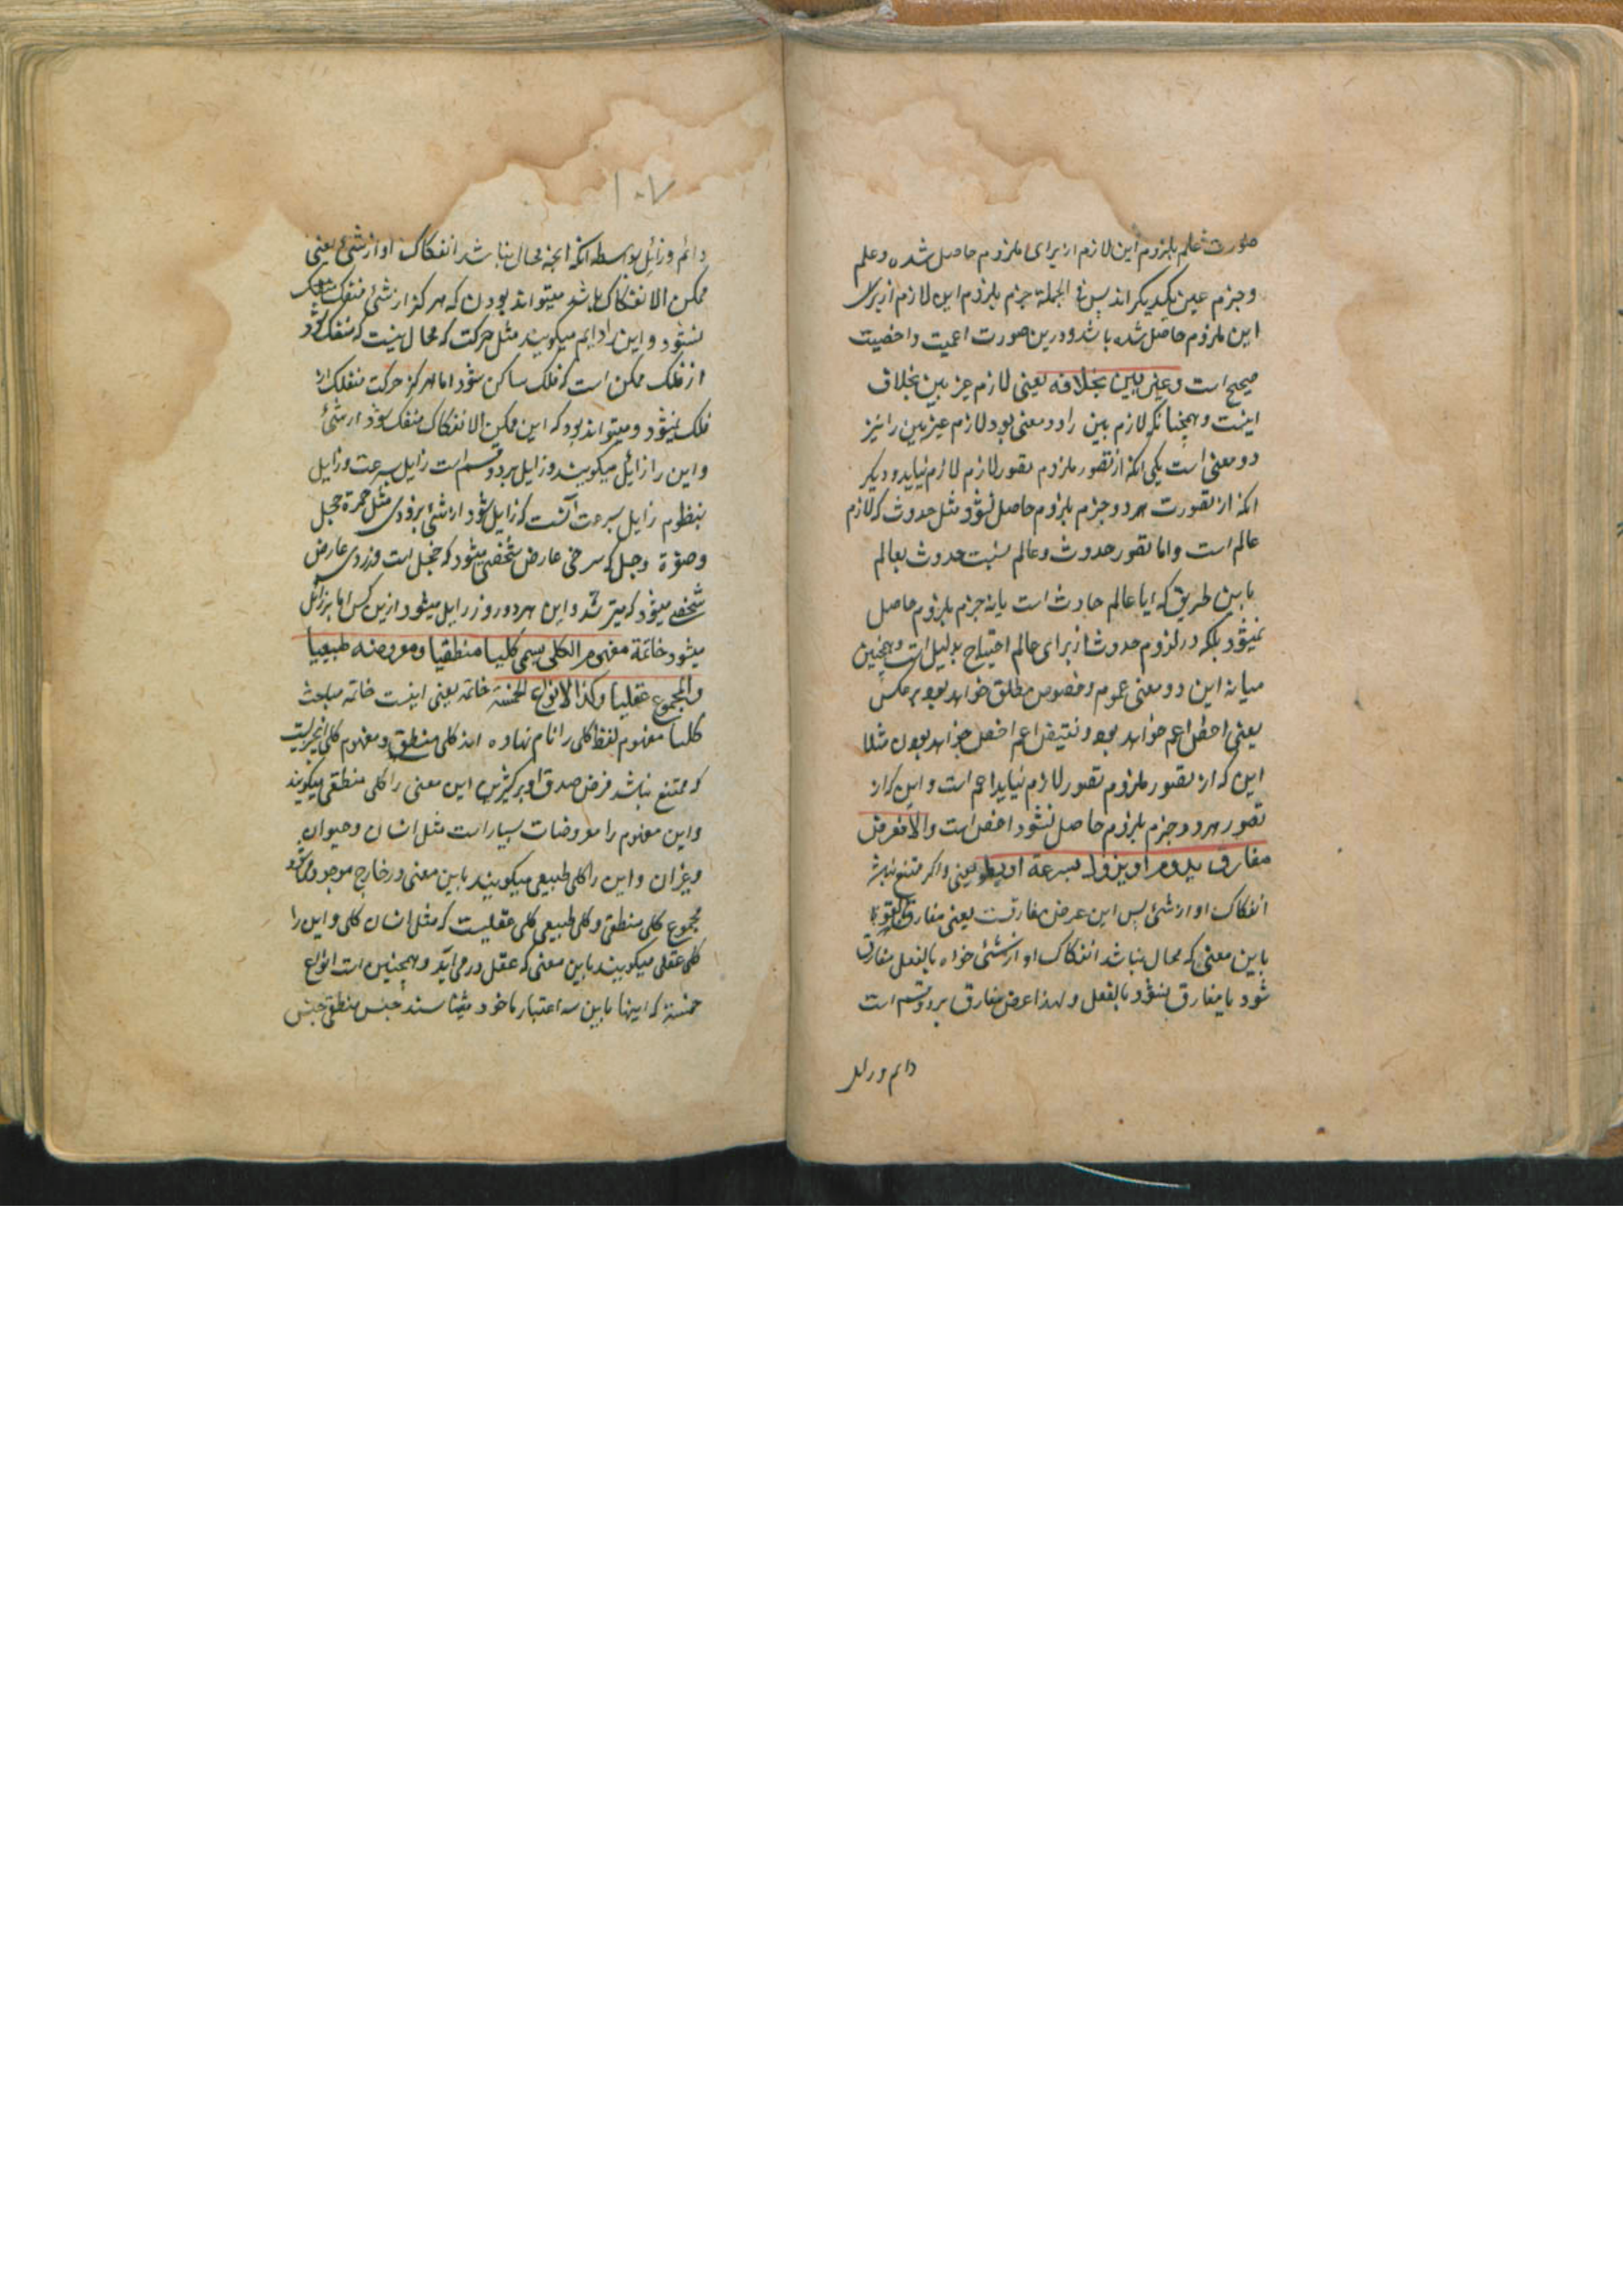 صورت علم بلزوم این لازم از برای ملزوم حاصل شده و علم
و جزم عین یکدیکراند پس فی الجملة جزم بلزوم این لازم از برای
این ملزوم حاصل شده باشد و درین صورت اعمیت و اخصیت
صحیح است وغیر بین بخلافه یعنی لازم غیر بین بخلاف
اینست و همچنانکه لازم بین را دو معنی بود لازم غیر بین را نیز
دو معنی است یکی انکه از تصور ملزوم تصور لازم لازم نیاید و دیکر
انکه از تصورت هر دو جزم بلزوم حاصل نشود مثل حدوث که لازم
عالم است و اما تصور حدوث و عالم نسبت حدوث بعالم
باین طریق که ایا عالم حادث است یا نه جزم بلزوم حاصل
نمیشود بلکه در لزوم حدوث از برای عالم احتیاج بدلیل است و همچنین
میانه این دو معنی عموم و خصوص مطلق خواهد بود بر عکس
یعنی اخص اعم خواهد بود و نقیض اعم اخص خواهد بودن مثلا
این که از تصور ملزوم تصور لازم نیاید اعم است و این که از
تصور هر دو جزم بلزوم حاصل نشود اخص است والا فعرض
مفارق یدوم او یزول بسرعة او بطو یعنی و اکر ممتنع نباشد
انفکاک او از شئ پس این عرض مفارقست یعنی مفارق بالقوة
باین معنی که محال نباشد انفکاک او از شئ خواه بالفعل مفارق
شود یا مفارق نشود بالفعل و لهذا عرض مفارق بر دو قسم است
دائم و زائل
۱۰۷
دائم و زائل بواسطه انکه انچه محال نباشد انفکاک او از شئ یعنی
ممکن الانفکاک باشد میتواند بودن که هرکز از شئ منفک
نشود و این را دایم میکویند مثل حرکت که محال نیست که منفک شود
از فلک ممکن است که فلک ساکن شود اما هرکز حرکت منفک از
فلک نمیشود و میتواند بود که این ممکن الانفکاک منفک شود از شئ
و این را زائل میکویند و زایل بر دو قسم است زایل بسرعت و زایل
ببطوم زایل بسرعت آنست که زایل شود از شئ بزودی مثل حمرة خجل
و صفرة وجل که سرخی عارض شخصی میشود که خجل است و زردی عارض
شخصے میشود که میترسد و این هر دو زود زایل میشود ازین کس اما بزائل
میشود خاتمة مفهوم الکلی یسمی کلیا منطقیا ومعروضه طبیعیا
والمجموع عقلیا وکذا الانواع الخمسة خاتمه یعنی اینست خاتمه مباحث
کلیا مفهوم لفظ کلی را نام نهاده اند کلی منطقی و مفهوم کلی انچیزیست
که ممتنع نباشد فرض صدق او بر کثیرین این معنی را کلی منطقی میکویند
و این مفهوم را معروضات بسیار است مثل انسان و حیوان
و غیر ان و این را کلی طبیعی میکویند باین معنی در خارج موجود میشود
مجموع کلی منطقی و کلی طبیعی کلی عقلیست که مثل انسان کلی و این را
کلی عقلی میکویند باین معنی که عقل در می آید و همچنین است انواع
خمسة که اینها باین سه اعتبار ماخود میشا سند جنس منطقی جنس